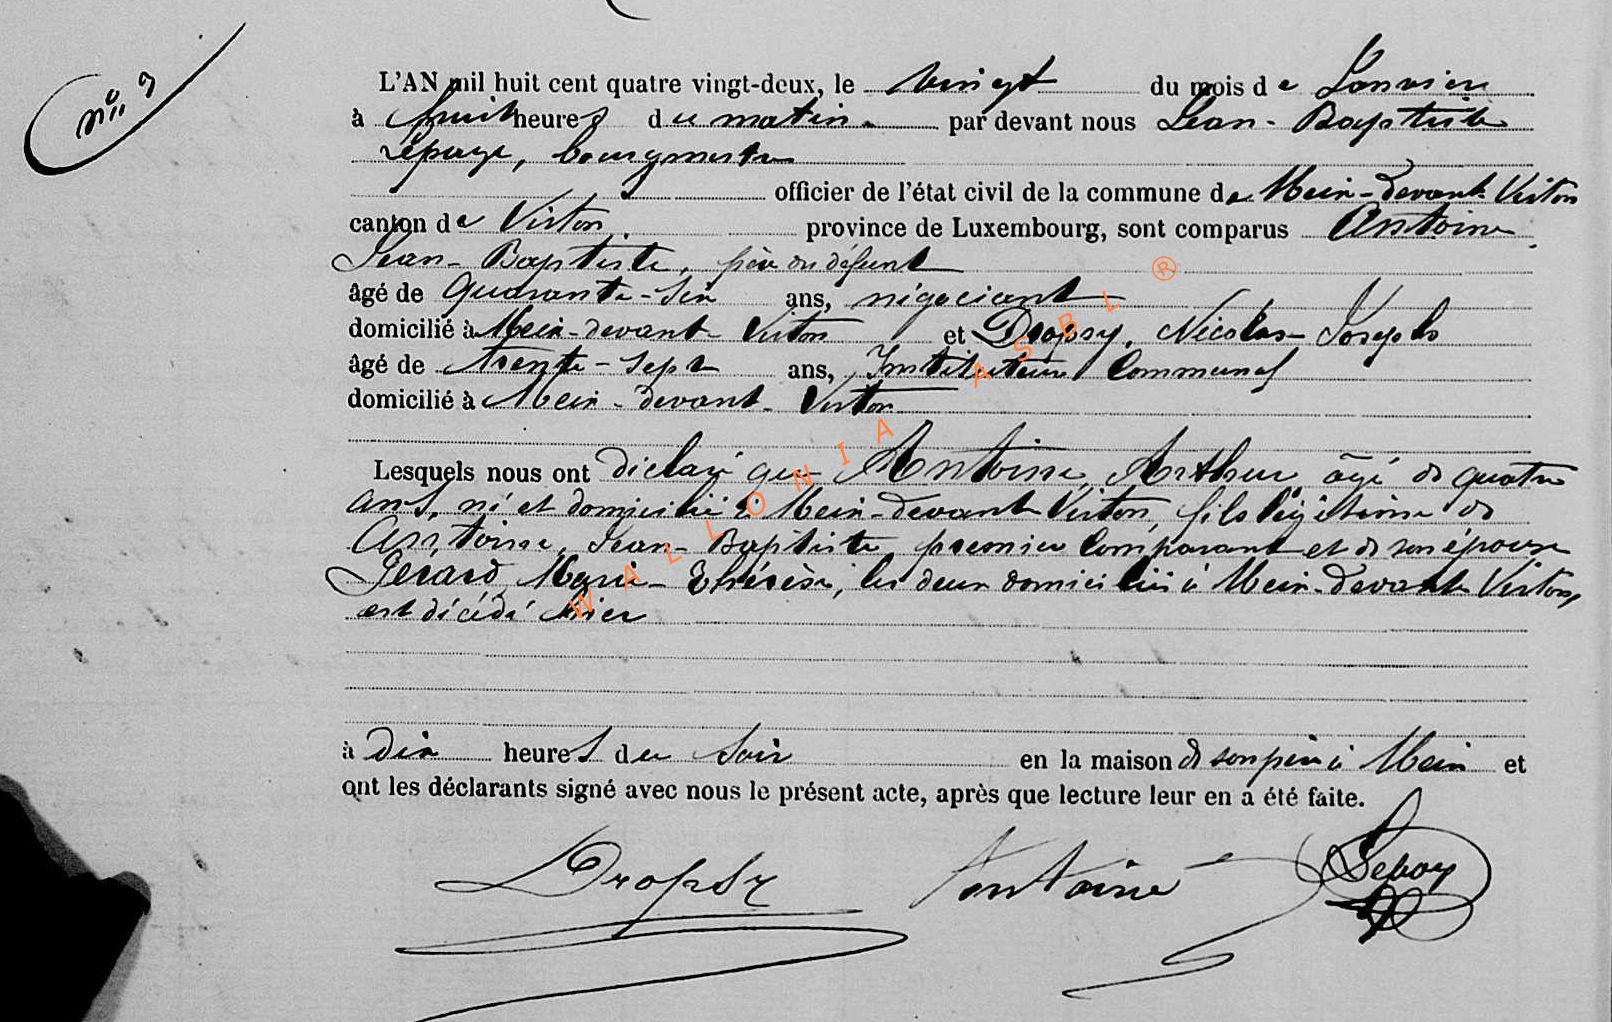 N° 3
L'AN mil huit cent quatre vingt-deux, le vingt du mois de Janvier
à huit heures du matin par devant nous Jean-Baptiste
Lepage, bourgmestre
officier de l'état civil de la commune de Meix-devant-Virton
canton de Virton province de Luxembourg, sont comparus Antoine
Jean-Baptiste, père du défunt
âgé de quarante-six ans, négociant
domicilié à Meix-devant-Virton et Dropsy, Nicolas-Joseph
âgé de trente-sept ans, Instituteur Communal
domicilié à Meix-devant-Virton
Lesquels nous ont déclaré que Antoine, Arthur, âgé de quatre
ans, né et domicilié à Meix-devant-Virton, fils légitime de
Antoine, Jean-Baptiste, premier Comparant et de son épouse
Gerard, Marie-Thérèse, les deux domiciliés à Meix-devant-Virton,
est décédé hier
à dix heures du soir en la maison de son père à Meix et
ont les déclarants signé avec nous le présent acte, après que lecture leur en a été faite.
Dropsy Antoine Lepage
WALLONIA ASBL ®